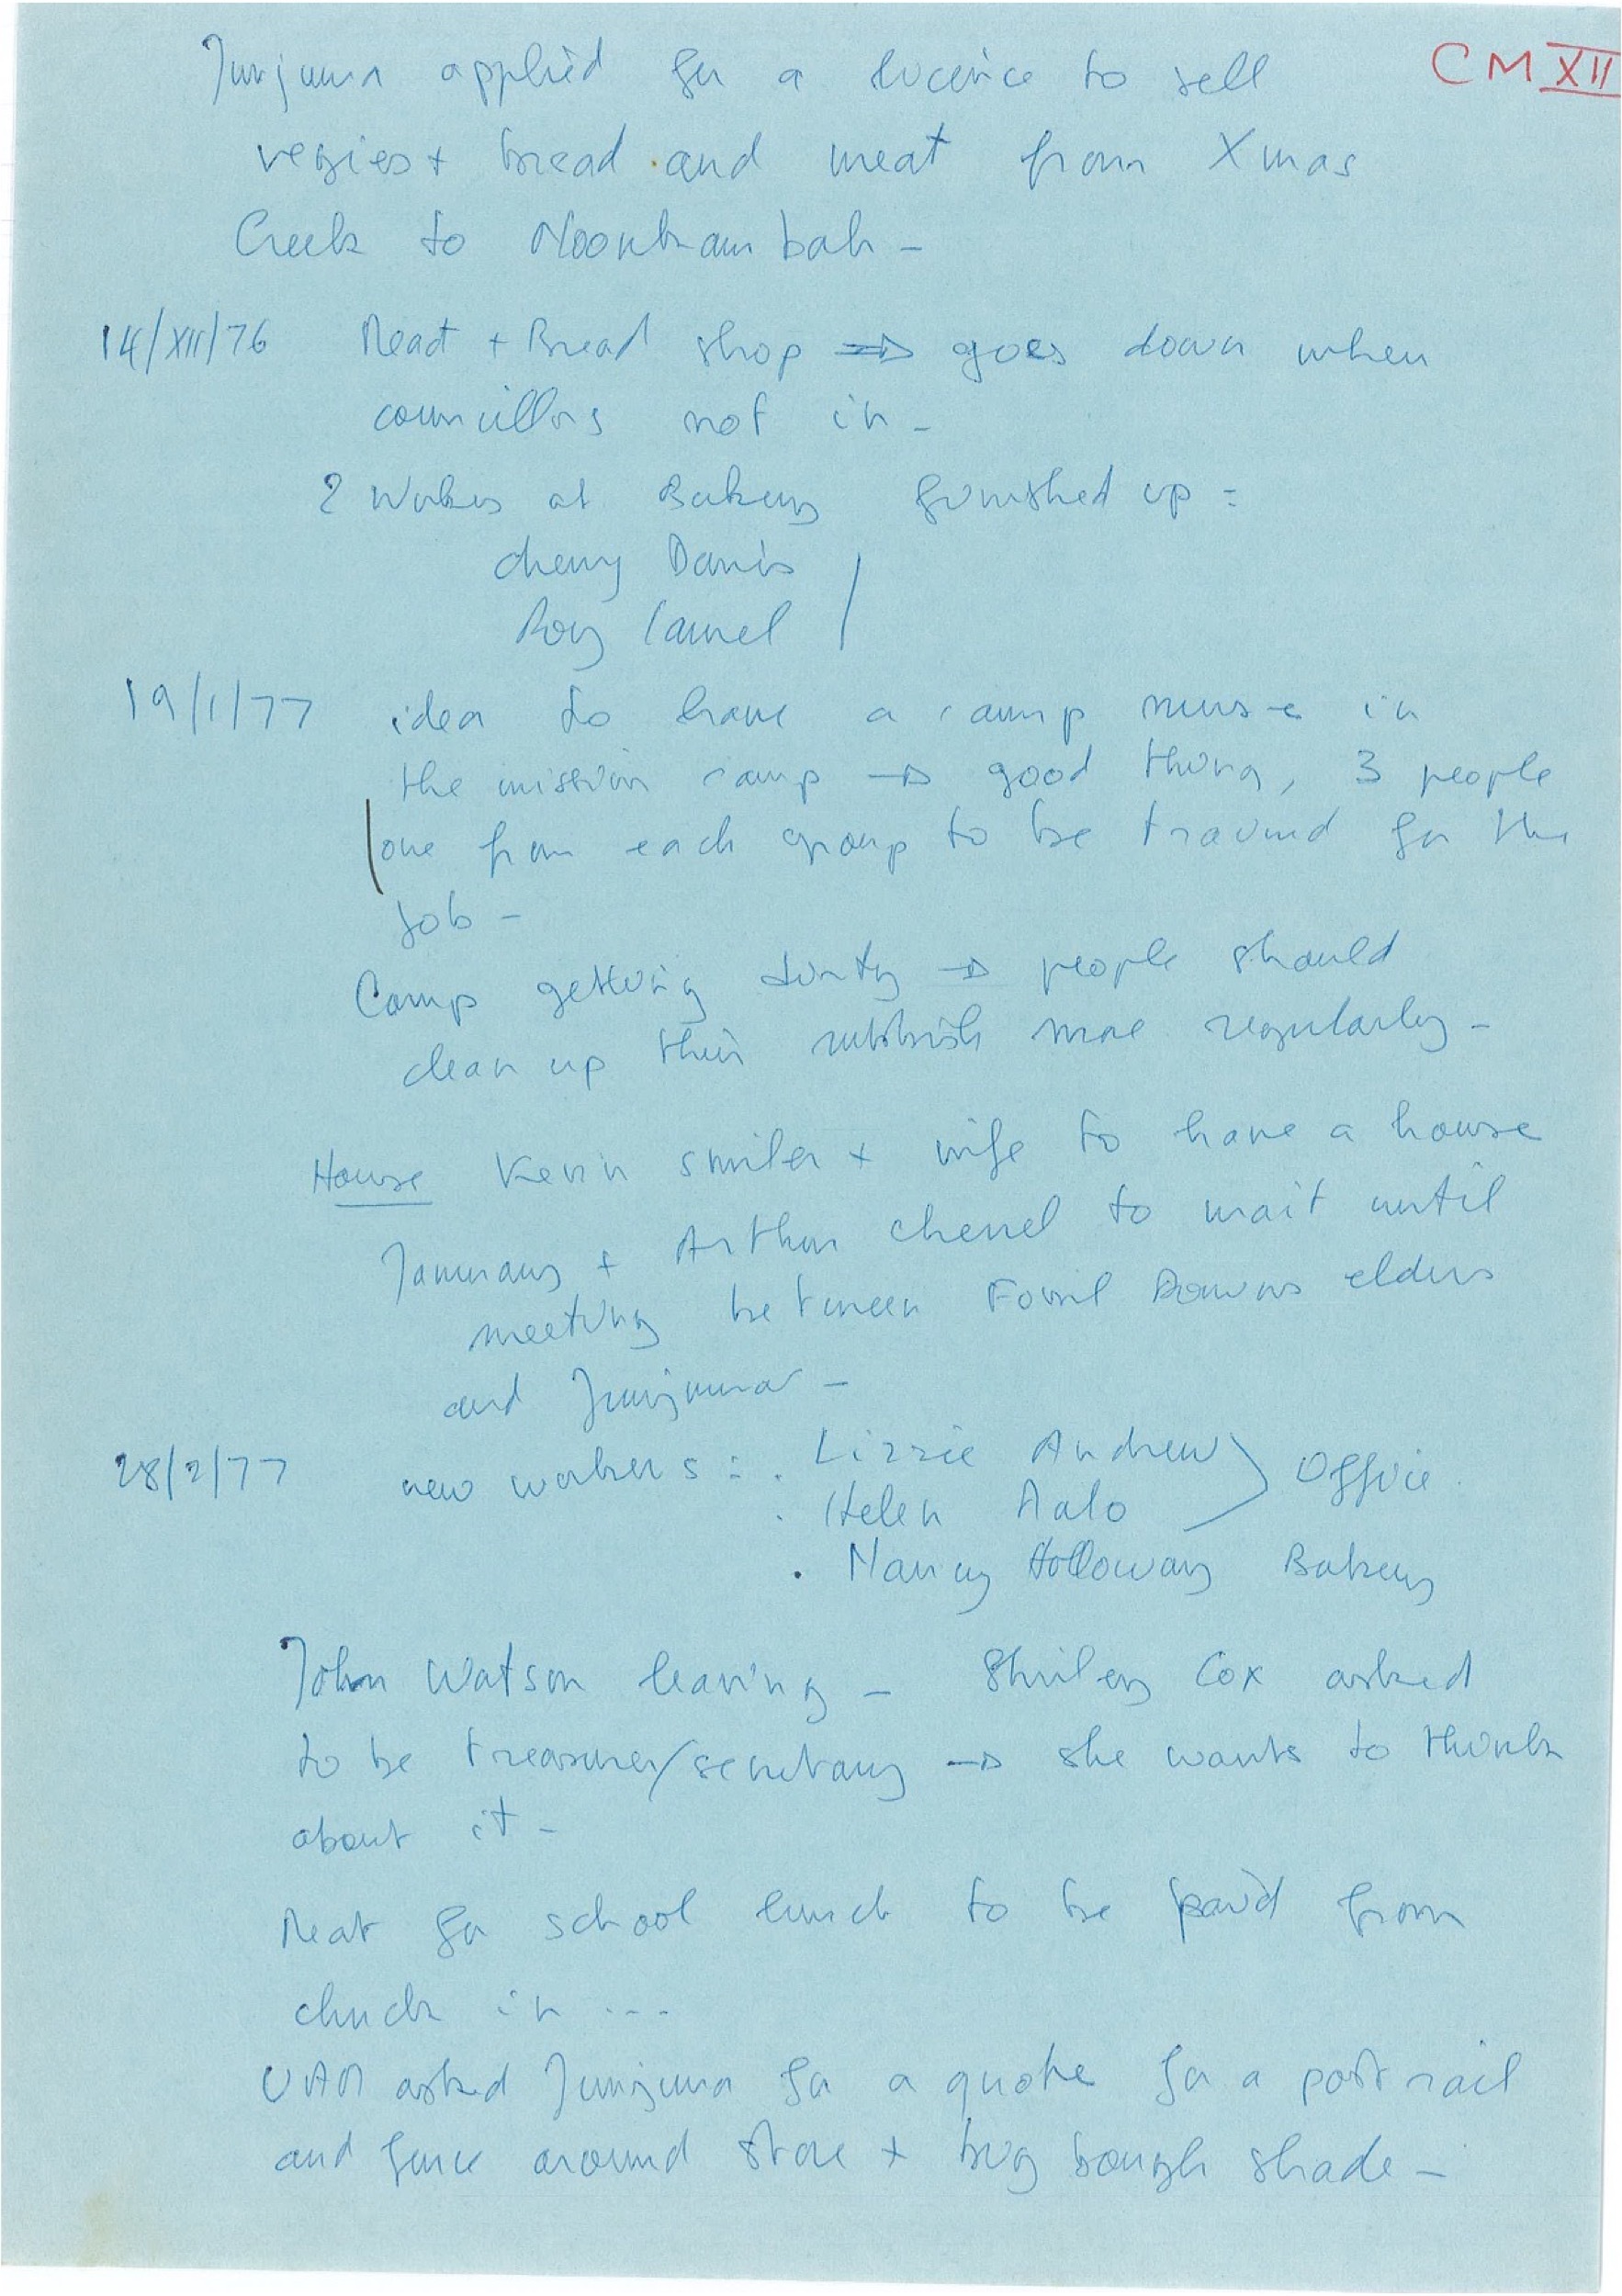 CM XII
Junjuwa applied for a licence to sell
vegies + bread and meat from Xmas
Creek to Noonkambah -
14/XII/76 Meat + Bread shop ⇒ goes down when
councillors not in -
2 Workers at Bakery finished up =
Cherry Davis
Roy Camel
19/1/77 idea to have a camp nurse in
the mission camp → good thing, 3 people
one from each group to be trained for the
job -
Camp getting dirty → people should
clean up their rubbish more regularly -
House Kevin Smiler + wife to have a house
+ Arthur to wait until
meeting between Fossil Downs elders
and Junjuwa -
28/2/77 new workers : . Lizzie Andrew
. Helen Aalo } Office
. Nancy Holloway Bakery
John Watson leaving - Shirley Cox asked
to be treasurer/secretary → she wants to think
about it -
Meat for school lunch to be paid from
chuck in ...
UAM asked Junjuwa for a quote for a post rail
and fence around store + big bough shade -